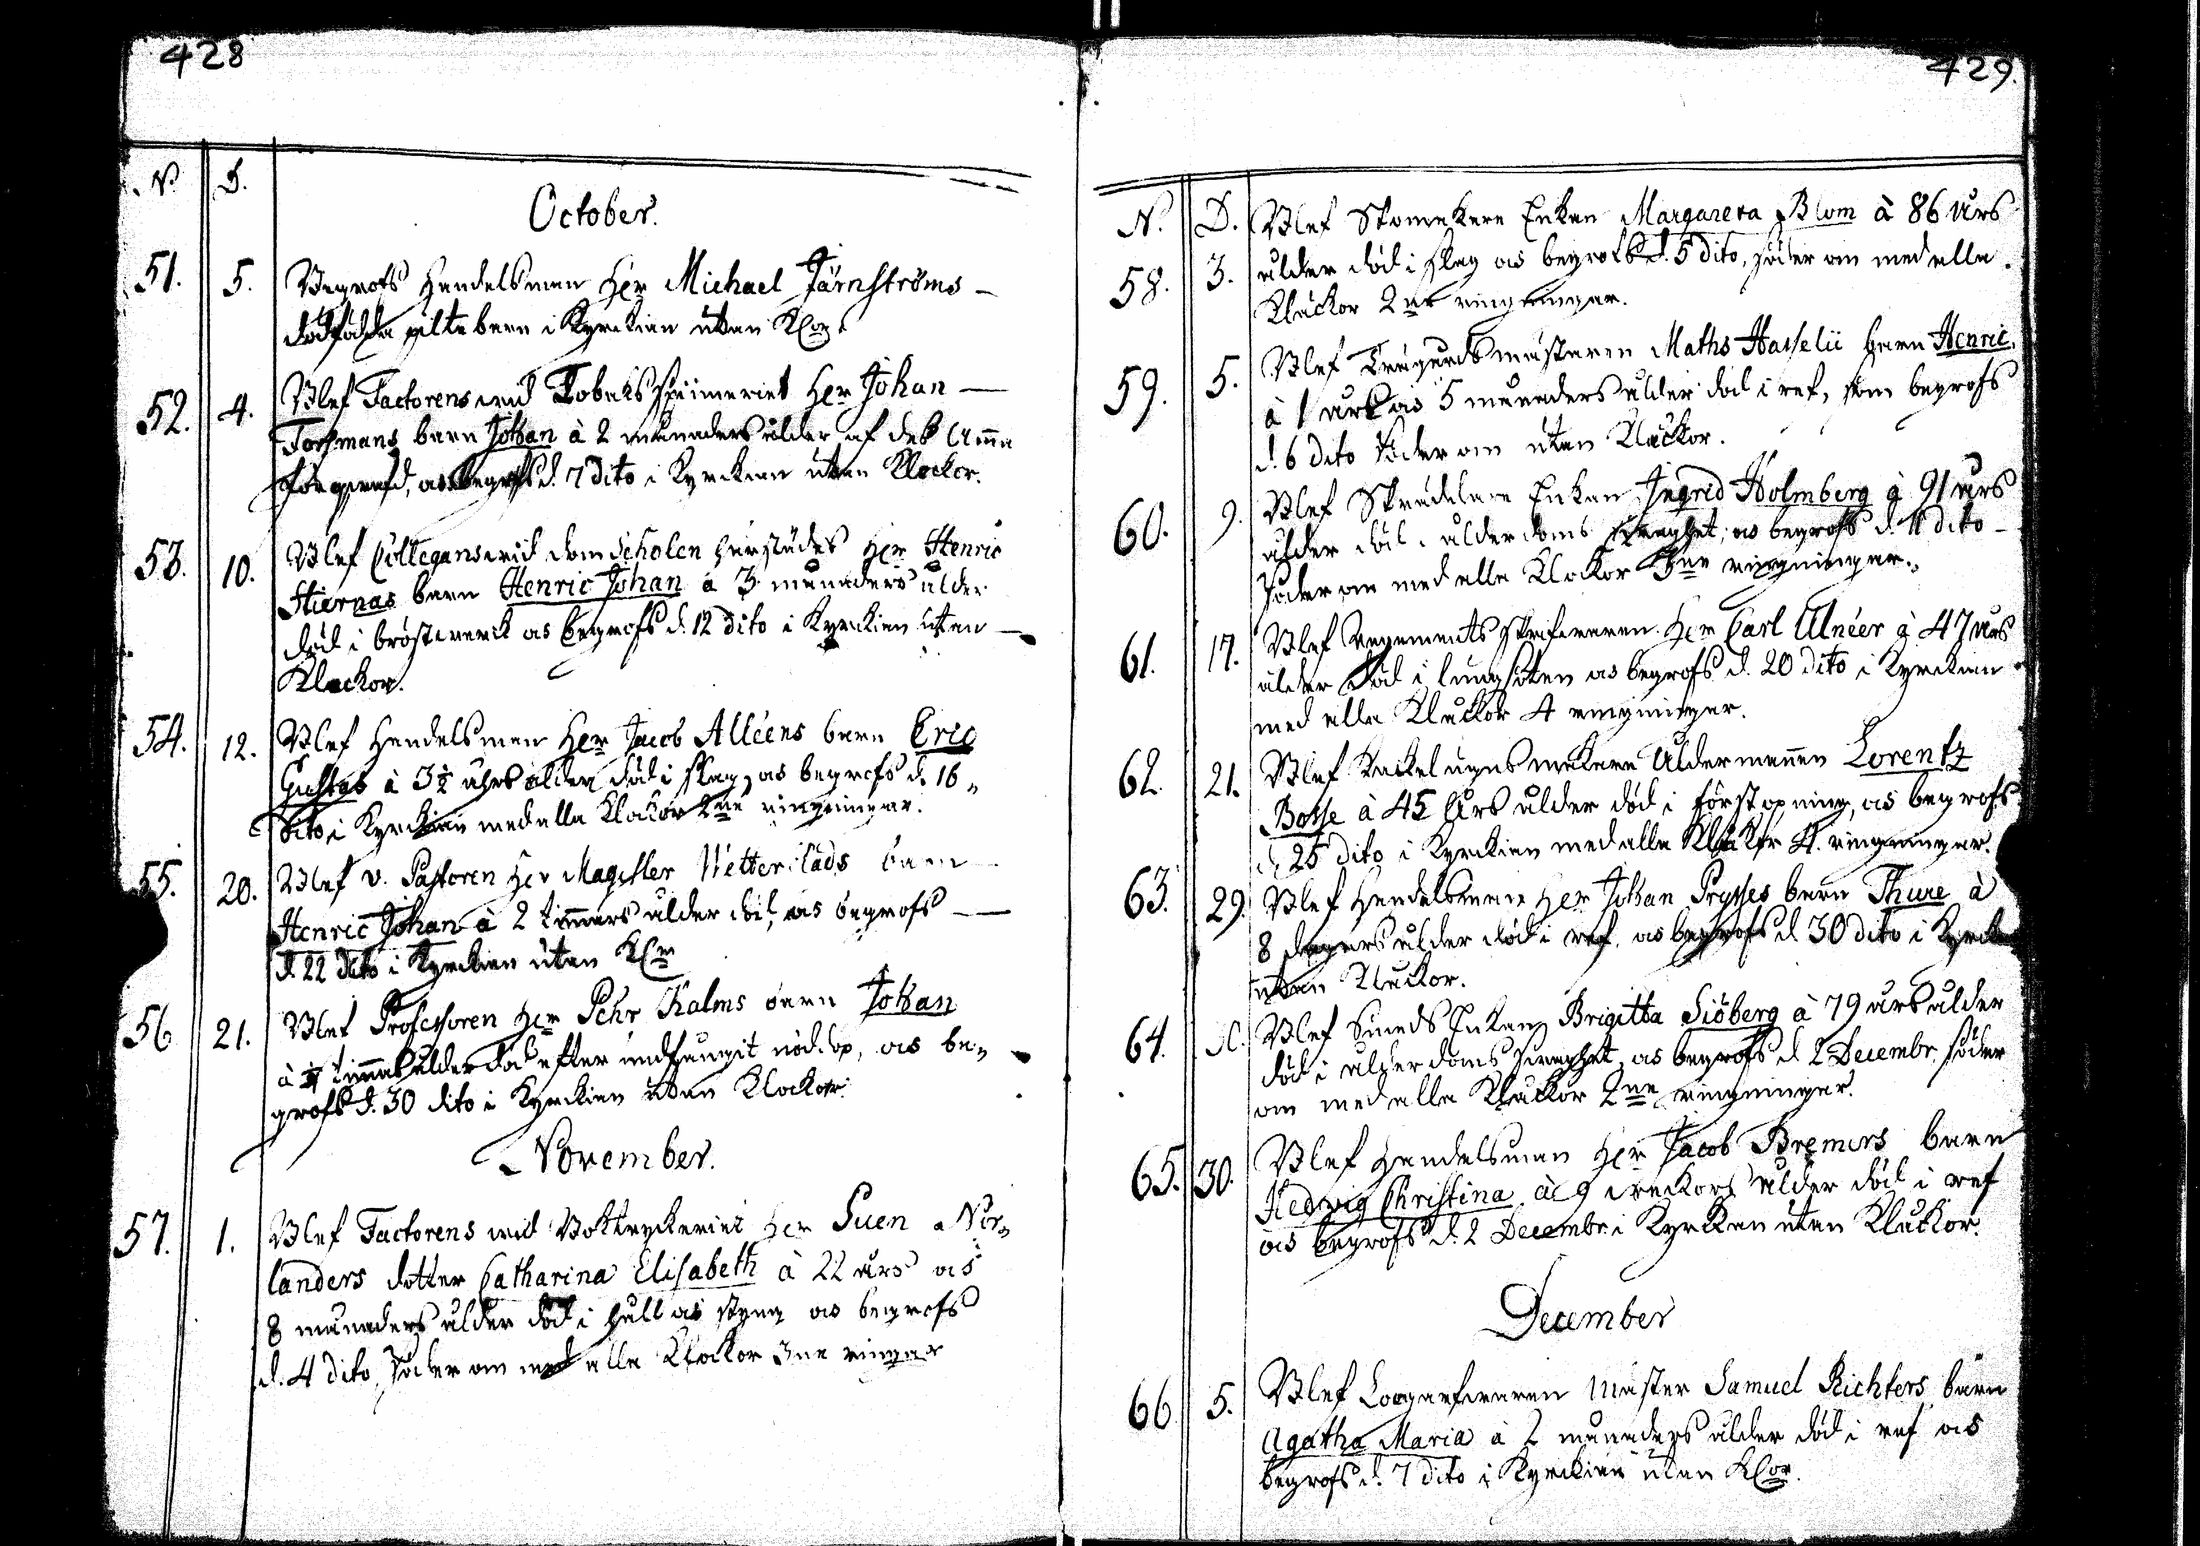 428
N. D.
October.
51. 5. Begrofs Handelsman Her Michael Järnströms
dödfödda gåsse barn i Kyrckian utan Klor
52. 4. Blef Factorens wid Tobaks spinneriet Her Johan
Forsmans barn Johan à 2 månaders ålder af deß Amma
förqwafd, as begrofs d. 7 dito i Kyrckian utan Klockor.
53. 10. Blef Collegans wid dom Scholen härstädes Her Henric
Hiernas barn Henric Johan à 3 månaders ålder
död i bröstwerck as begrofs d. 12 dito i Kyrckian utan
Klockor.
54. 12. Blef Handelsman Her Jacob Alléens barn Eric
Gustaf à 3½ åhrs ålder död i slag, as begrofs d. 16
dito i Kyrckian med alla Klockor 2ne ringningar.
55. 20. Blef v. Pastoren Her Magister Wetterblads barn
Henric Johan à 2 timmars ålder död, as begrofs
d. 22 dito i Kyrckian utan Klor
56 21. Blef Professoren Her Pehr Kalms barn Johan
à timmas ålder död efter undfångit nöddop, as be-
grofs d. 30 dito i Kyrckian utan Klockor.
November.
57. 1. Blef Factorens wid Boktryckeriet Her Suen Nor-
landers dotter Catharina Elisabeth à 22 års as
8 månaders ålder död i håll as styng as begrofs
d. 4 dito, söder om med alla Klockor 3ne ringar
429.
N. D.
58. 3. Blef Skomakare Enkan Margareta Blom à 86 Års
ålder död i slag as begrofs d. 5 dito, söder om med alla
Kluckor 2ne ringningar.
59. 5. Blef Trägårdsmästaren Maths Hasselii barn Henric,
à 1 års as 5 månaders ålder död i ref, som begrofs
d. 6 dito söder om utan Kluckor.
60. 9. Blef Skräddare Enkan Ingrid Holmberg à 91 års
ålder död i ålderdoms swaghet, as begrofs d. 11 dito
söder om med alla Klockor 3ne ringningar.
61. 17. Blef Regements skrifwaren Her Carl Alnéer à 47 års
ålder död i lungsoten as begrofs d. 20 dito i Kyrckian
med alla Kluckor 4 ringningar.
62. 21. Blef Kackelugnsmakare Åldermannen Lorentz
Bosse à 45 Års ålder död i förstopning, as begrofs
d. 25 dito i Kyrckian med alla Kluckor 4. ringningar.
63. 29. Blef Handelsman Her Johan Prysses barn Thure à
8 dagars ålder död i ref. as begrofs d 30 dito i Kyrck
utan Kluckor.
64. Blef Smeds Enkan Brigitta Siöberg à 79 års ålder
död i ålderdoms swaghet, as begrofs d. 2 Decembr. söder
om med alla Kluckor 2ne ringningar.
65. 30. Blef Handelsman Her Jacob Bremers barn
Hedwig Christina à 9 weckors ålder död i ref
as begrofs d. 2 Decembr. i Kyrckan utan Kluckor.
December
66. 5. Blef Logarfwaren Mäster Samuel Richters barn
Agatha Maria à 2 månaders ålder död i ref as
begrofs d. 7 dito i Kyrckian utan Klor.